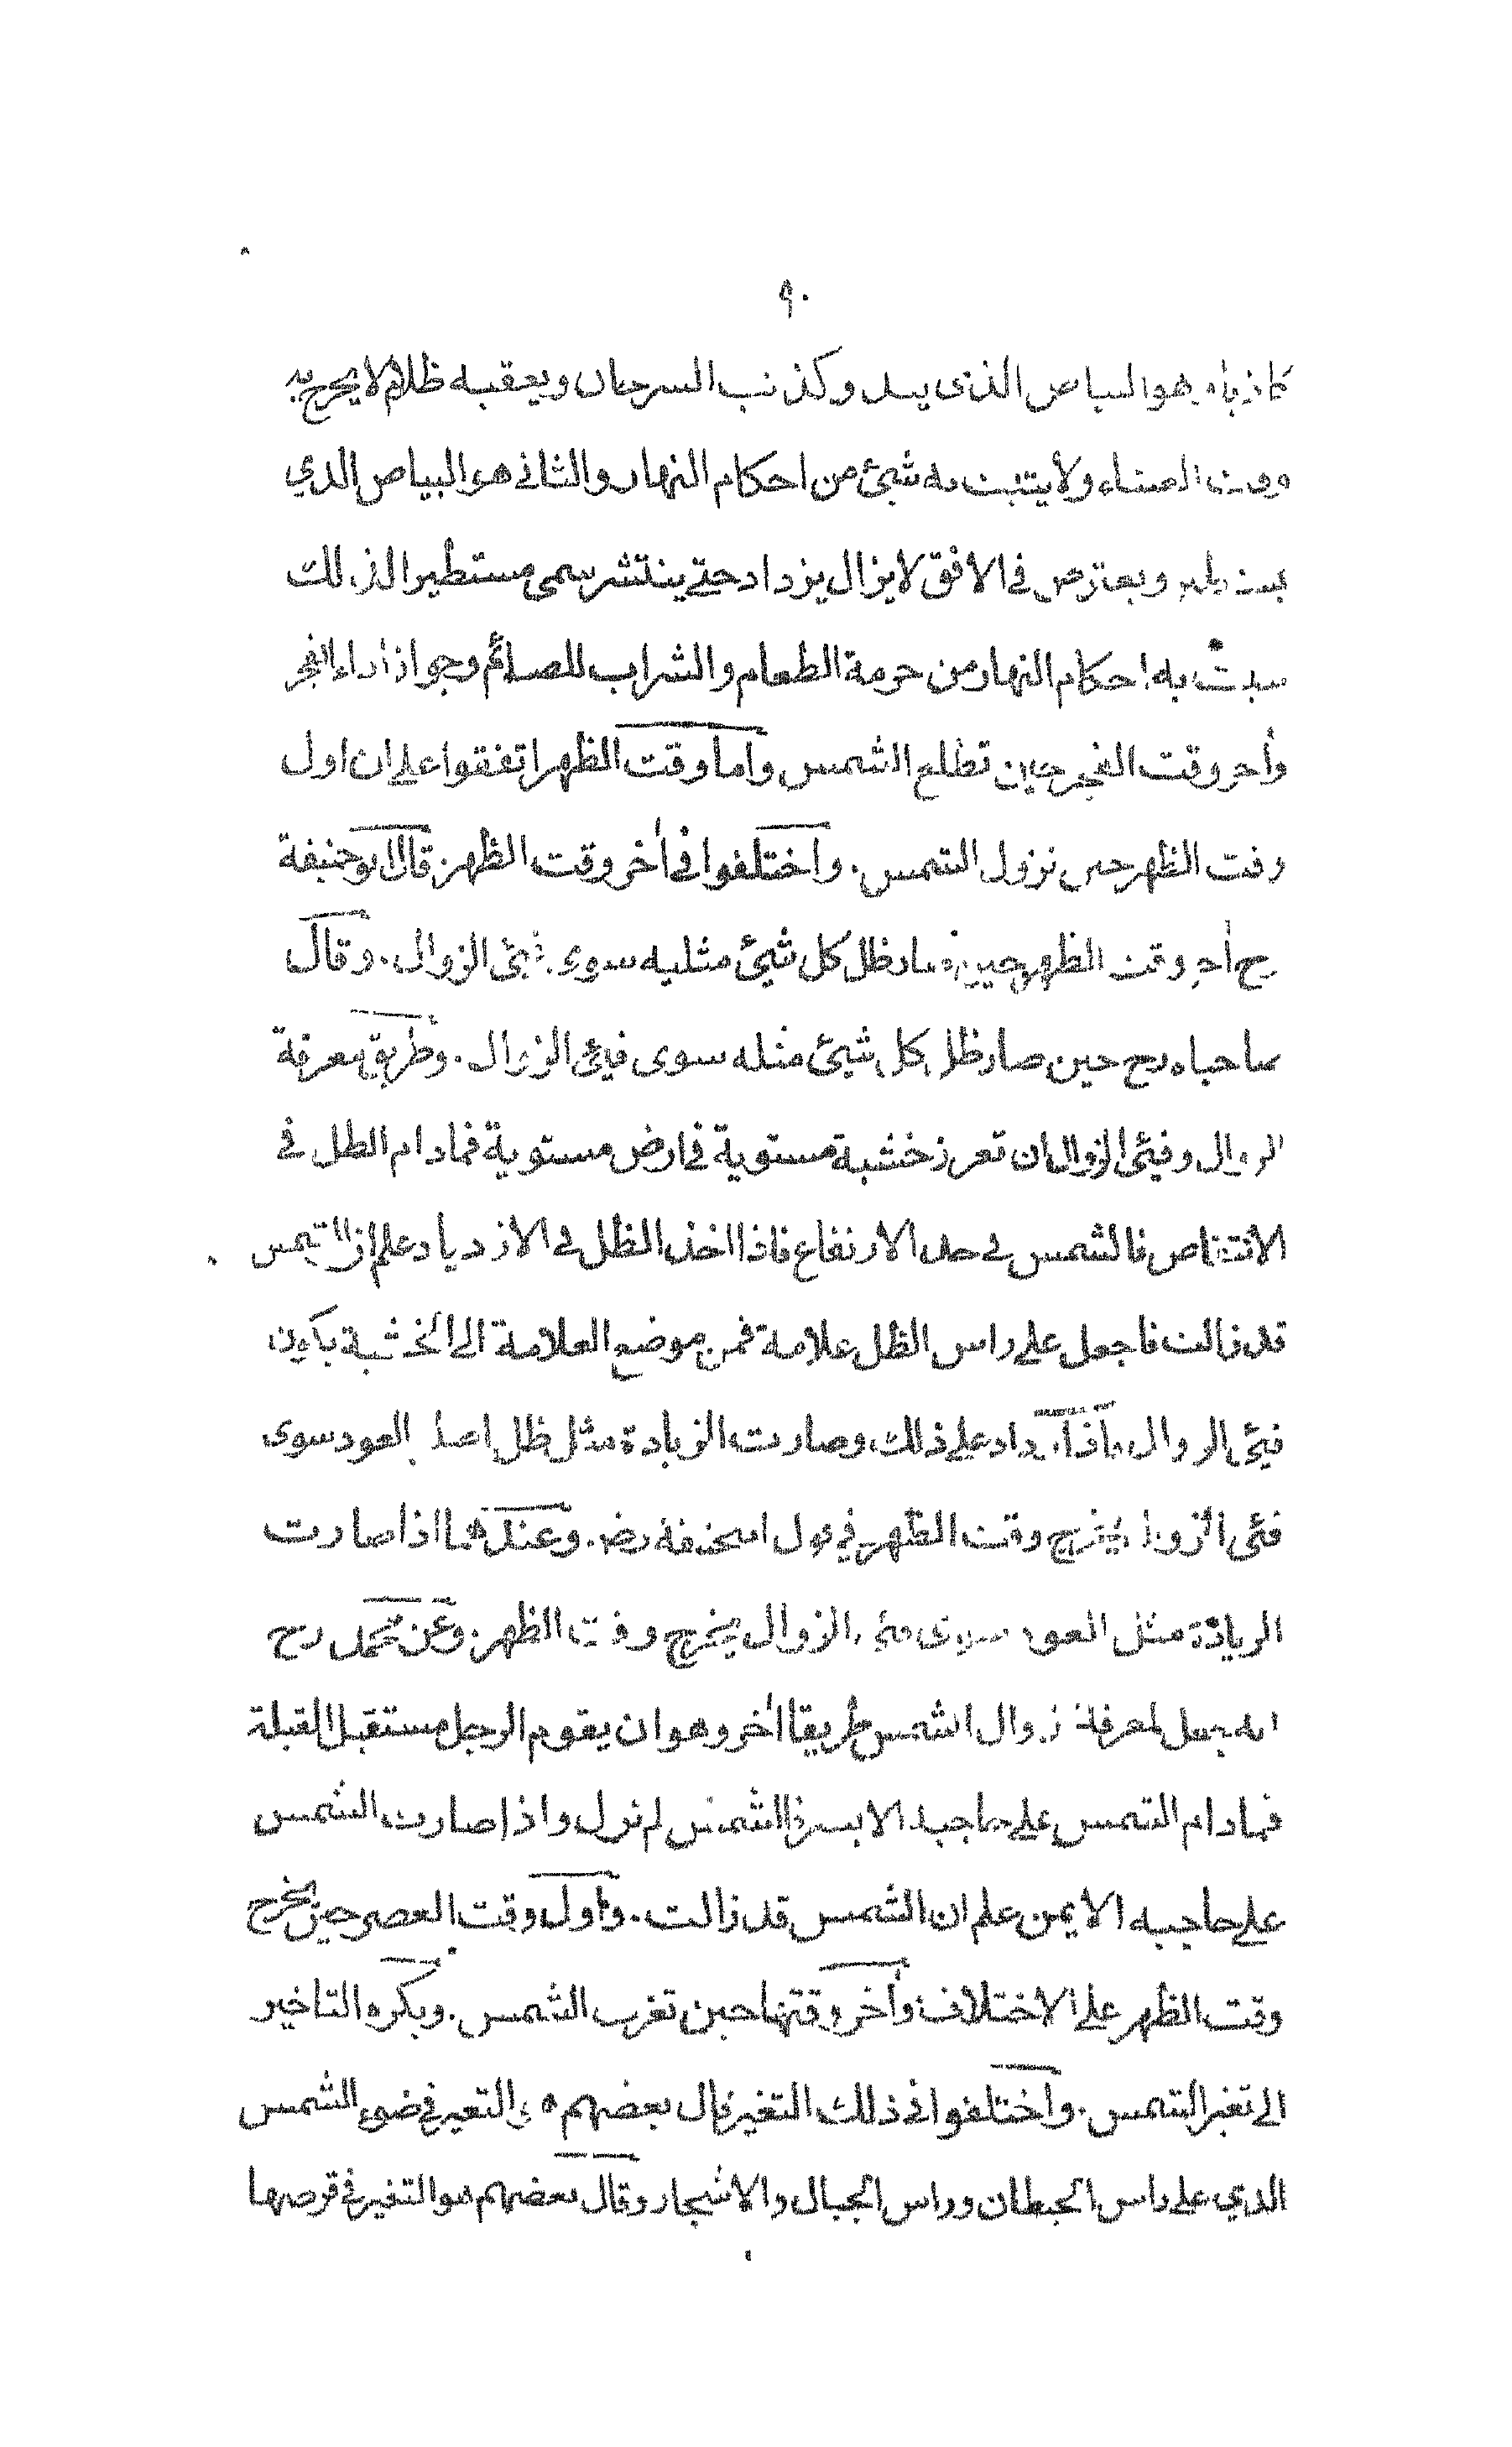 ٩٠
هو البياض الذى يبدو كذنب السرحان ويعقبه ظلام لا يخرج به
العشاء ولا يثبت به شيئ من احكام النهار والثانى هو البياض الذي
ويعترض في الافق لا يزال يزداد حتى ينتشر سمى مستطيرا لذلك
به احكام النهار من حرمة الطعام والشراب للصائم وجواز اداء الفجر
وأخر وقت الفجر حين تطلع الشمس واما وقت الظهر اتفقوا على ان اول
وقت الظهر حين تزول الشمس. واختلفوا فى أخر وقت الظهر. قال ابو حنيفة
رح أخر وقت الظهر حين صار ظل كل شيئ مثليه سوى فيئ الزوال. وقال
صاحباه رح حين صار ظل كل شيئ مثله سوى فيئ الزوال. وطريق معرفة
الزوال وفيئ الزوال ان تغرز خشبة مستوية فى ارض مستوية فمادام الظل فى
الانتقاص فالشمس في حد الارتفاع فاذا اخذ الظل في الازدياد علم ان الشمس
قد زالت فاجعل على راس الظل علامة فمن موضع العلامة الى الخشبة يكون
فيئ الزوال فاذا زداد على ذلك وصارت الزيادة مثل ظل اصل العود سوى
فئى الزوال يخرج وقت الظهر في قول ابيحنيفة رض. وعندهما اذا صارت
الزيادة مثل العود سوى فيئ الزوال يخرج وقت الظهر. وعن محمد رح
انه يجعل لمعرفة زوال الشمس طريقا اخر وهو ان يقوم الرجل مستقبل القبلة
فمادام الشمس على حاجبه الايسر فالشمس لم تزل واذا صارت الشمس
على حاجبه الايمن علم ان الشمس قد زالت. واول وقت العصر حين يخرج
وقت الظهر على الاختلاف وأخر وقتها حين تغرب الشمس. ويكره التاخير
الى تغير الشمس. واختلفوا فى ذلك التغير قال بعضهم هو التغير فى ضوء الشمس
الذي على راس الحيطان وراس الجبال والاشجار وقال بعضهم هو التغير فى قرصها